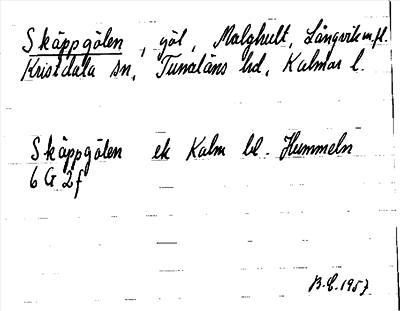 Skäppgölen, göl, Malghult, Långvik m.fl.
Kristdala sn, Tunaläns hd, Kalmar l.
Skäppgölen ek Kalm bl. Hummeln
6 G 2 f
B.E. 1957